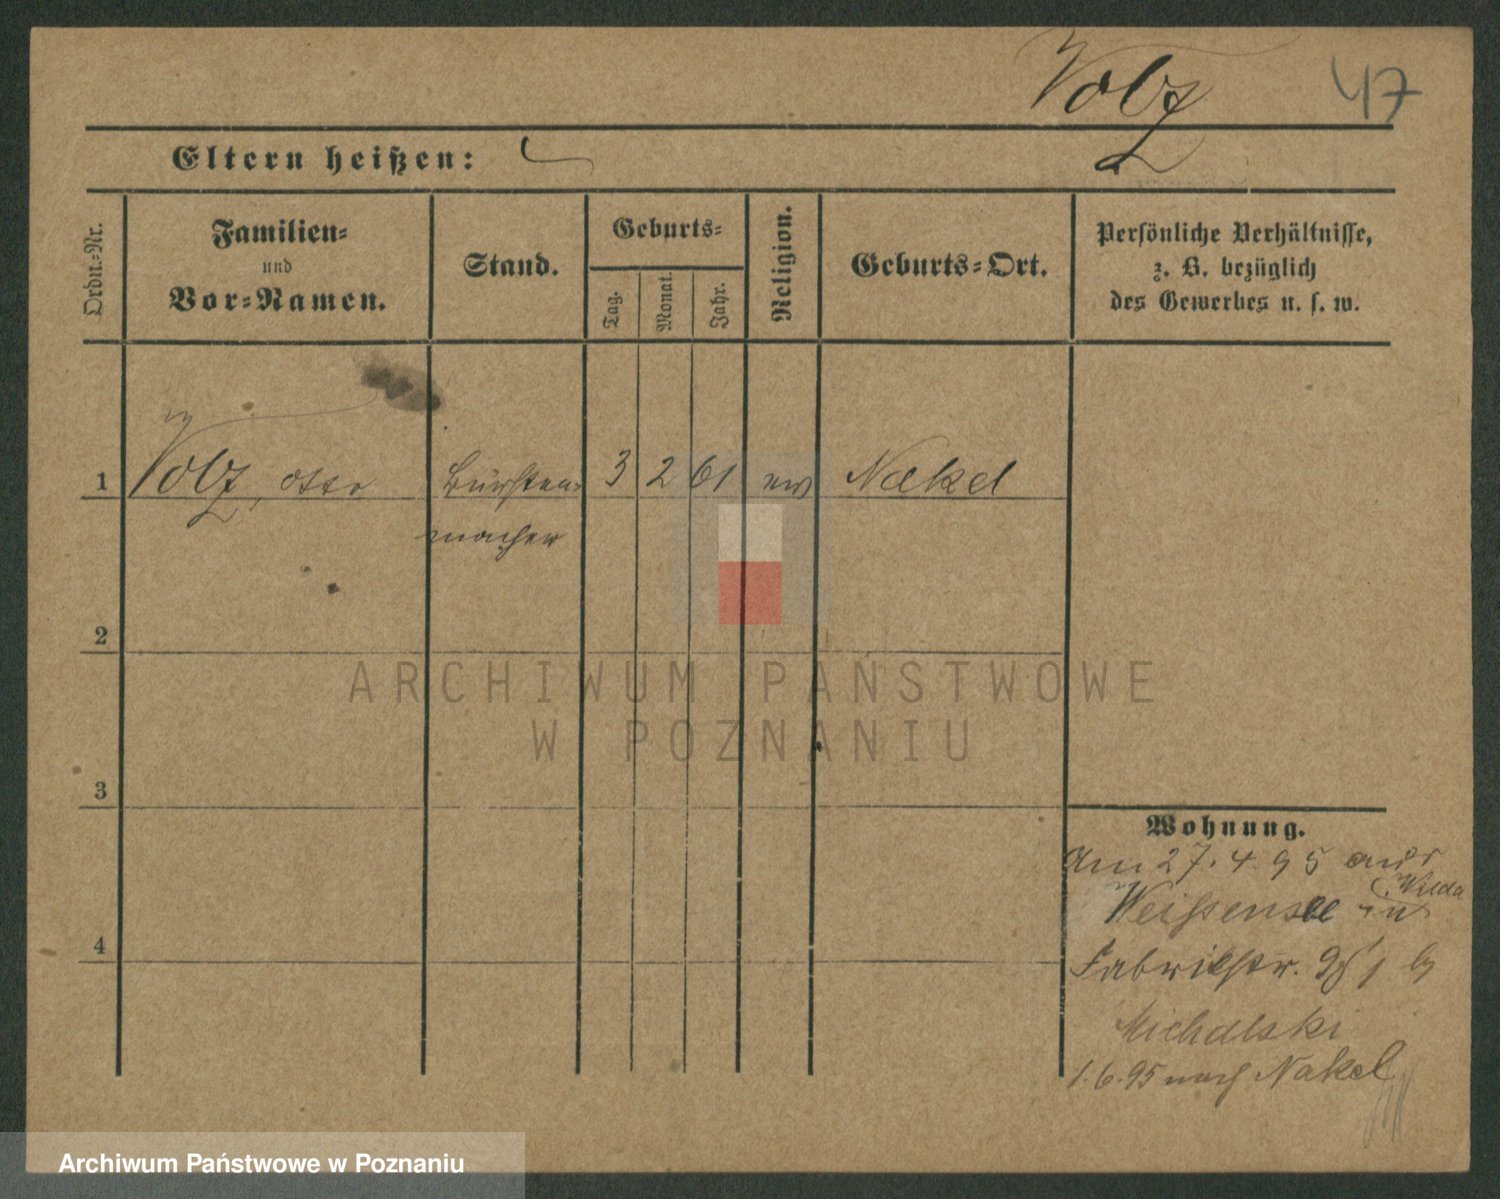 Volz 47
Eltern heißen:
Ordn.=Nr.
Familien=
und
Vor=Namen.
Stand.
Geburts=
Tag.
Monat.
Jahr.
Religion.
Geburts=Ort.
Persönliche Verhältnisse,
z. B. bezüglich
des Gewerbes u. s. w.
1 Volz, Otto Bürsten= 3 2 61 ev Nakel
macher
2
3
4
Wohnung.
Am 27. 4. 95 aus
Weißensee in Wilda
Fabrikstr. by
Michalski
1. 6. 95 nach Nakel
ARCHIWUM PAŃSTWOWE
W POZNANIU
Archiwum Państwowe w Poznaniu